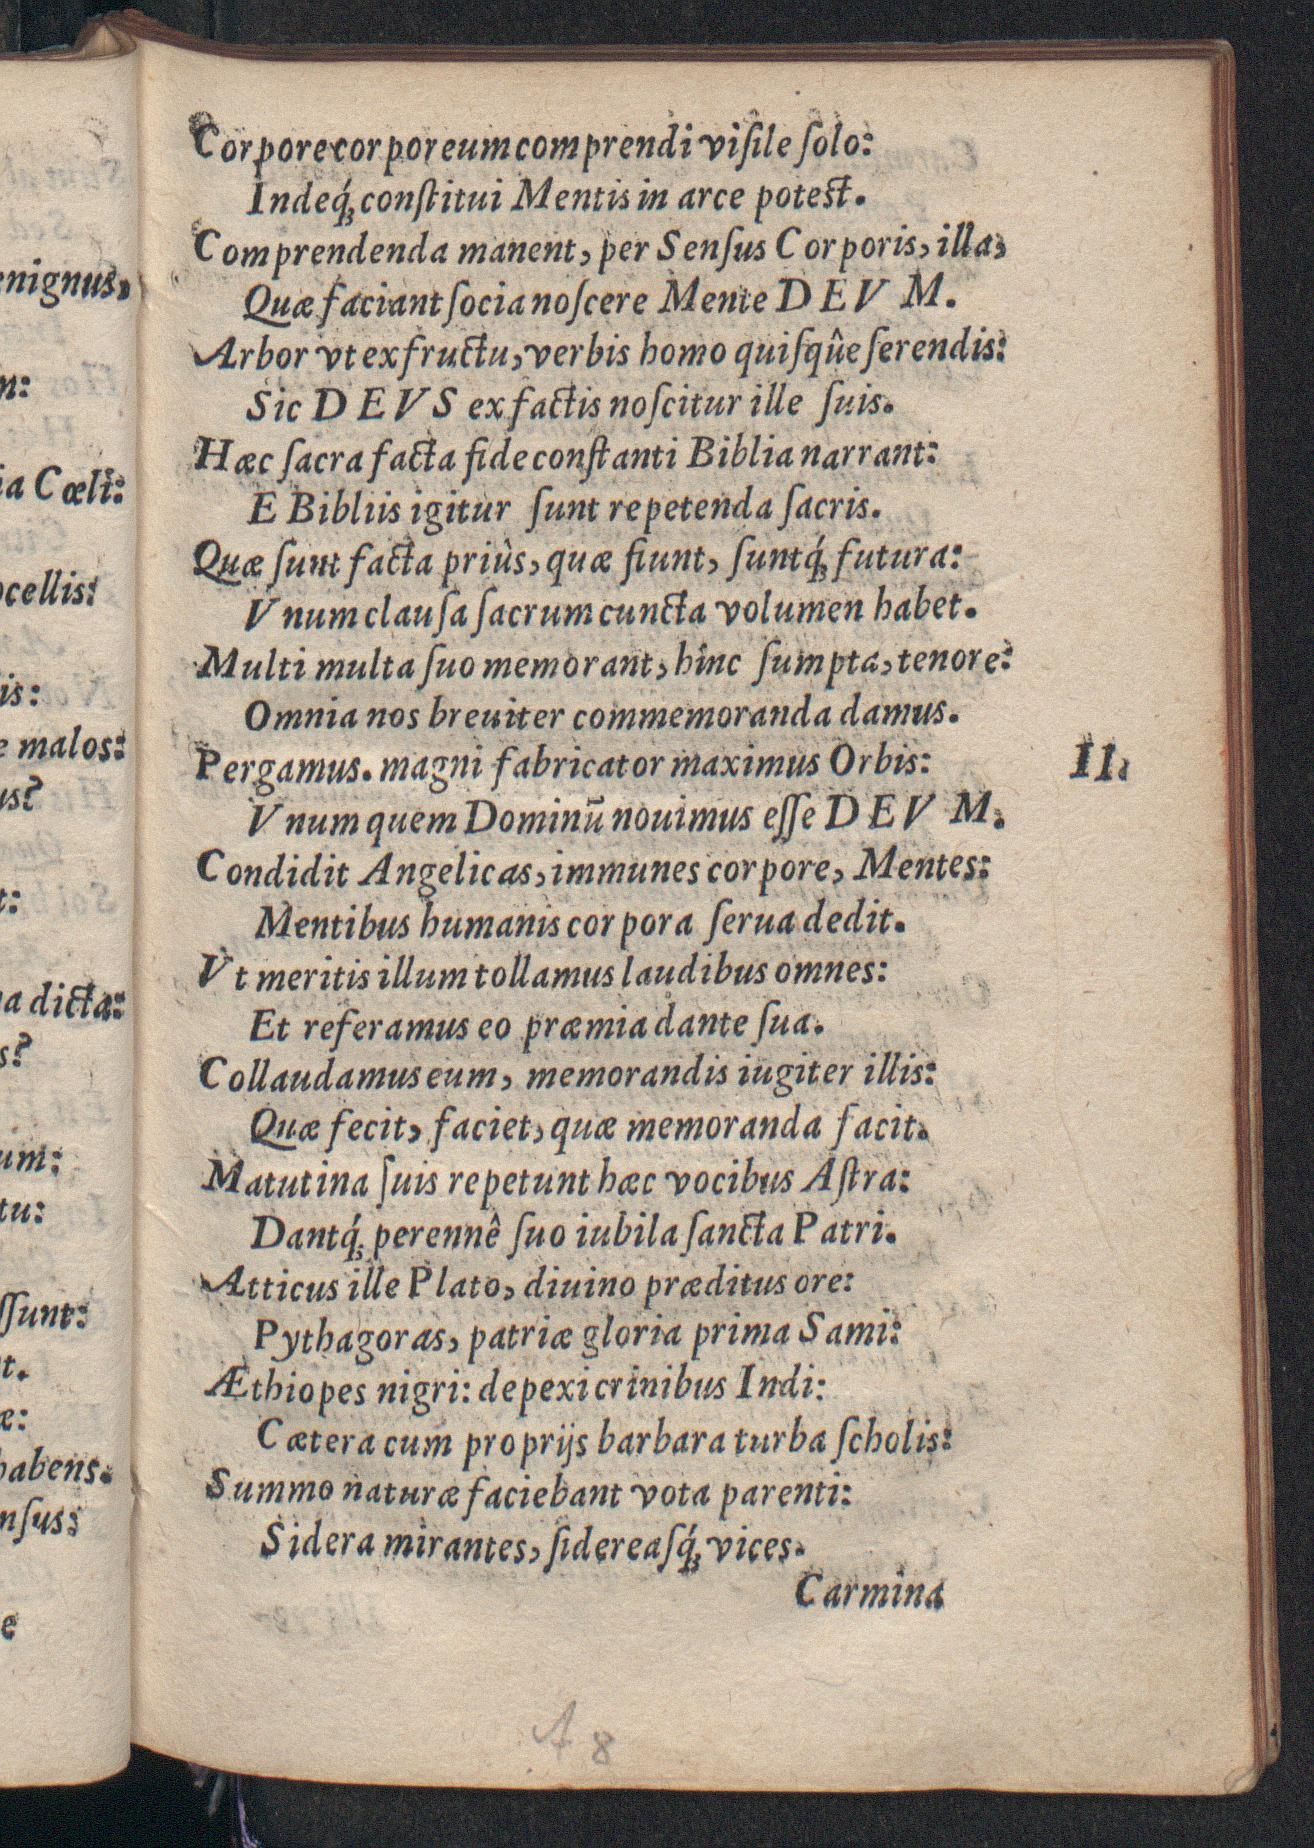 enignus,
n:
ia Cœli:
ocellis:
is:
e malos:
us?
t:
a dicta:
s?
um:
tu:
ſſunt:
t.
æ:
habens.
nſus:
e
Corpore corporeum comprendi viſile ſolo:
Indeq́ꝫ conſtitui Mentis in arce poteſt.
Comprendenda manent, per Senſus Corporis, illa,
Quæ faciant ſocia noſcere Mente DEVM.
Arbor vt ex fructu, verbis homo quiſqûe ſerendis:
Sic DEVS ex factis noſcitur ille ſuis.
Hæc ſacra facta fide conſtanti Biblia narrant:
E Bibliis igitur ſunt repetenda ſacris.
Quæ ſunt facta priùs, quæ fiunt, ſuntq́ꝫ futura:
Vnum clauſa ſacrum cuncta volumen habet.
Multi multa ſuo memorant, hînc ſumpta, tenore:
Omnia nos breuiter commemoranda damus.
Pergamus. magni fabricator maximus Orbis: II.
Vnum quem Dominū nouimus eſſe DEVM.
Condidit Angelicas, immunes corpore, Mentes:
Mentibus humanis corpora ſerua dedit.
Vt meritis illum tollamus laudibus omnes:
Et referamus eo præmia dante ſua.
Collaudamus eum, memorandis iugiter illis:
Quæ fecit, faciet, quæ memoranda facit.
Matutina ſuis repetunt hæc vocibus Aſtra:
Dantq́ꝫ perennê ſuo iubila ſancta Patri.
Atticus ille Plato, diuino præditus ore:
Pythagoras, patriæ gloria prima Sami:
Æthiopes nigri: depexi crinibus Indi:
Cætera cum proprijs barbara turba ſcholis:
Summo naturæ faciebant vota parenti:
Sidera mirantes, ſidereaſq́ꝫ vices.
Carmina
A 8